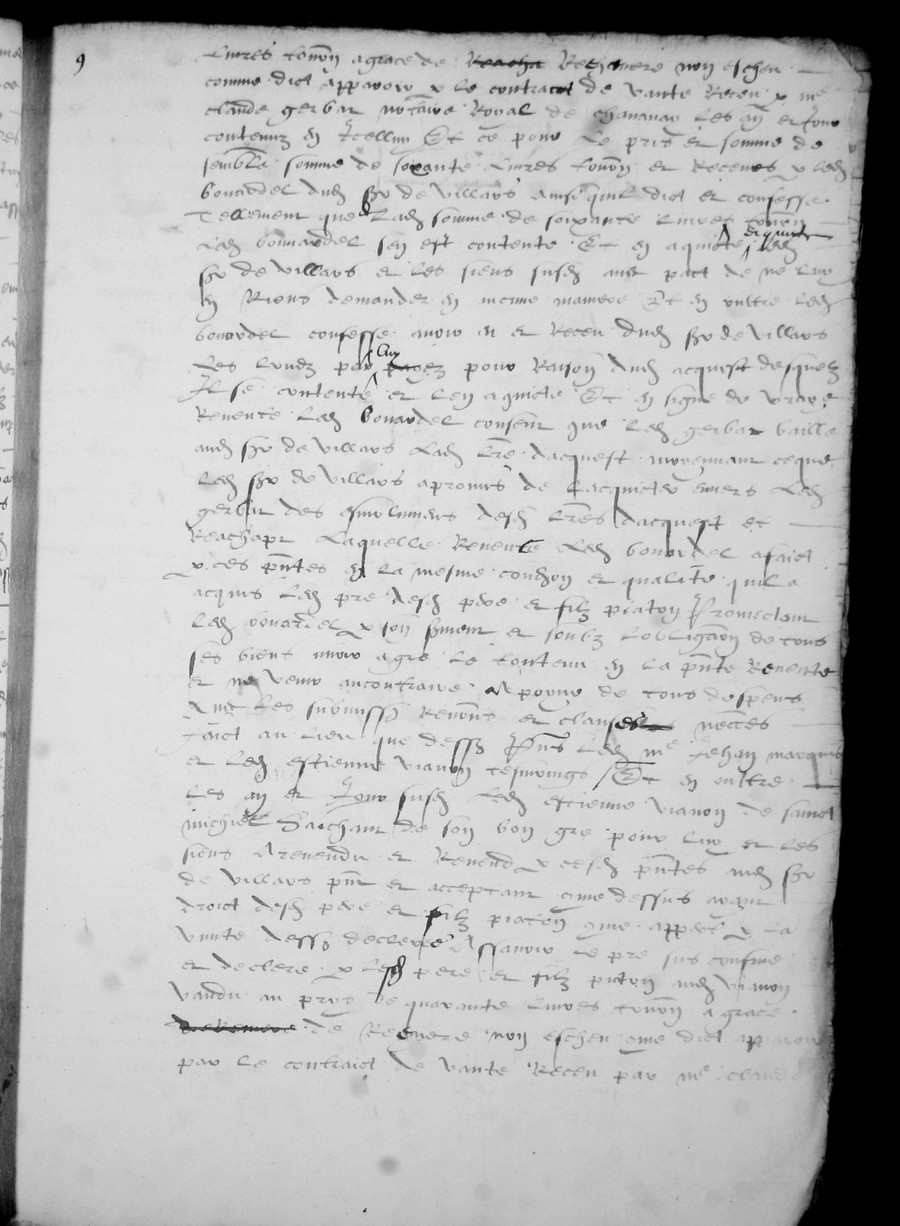 9
Livres tourn a grace de Reacha Reschuere non escheu
comme dict apparoir p le contraict de vante Receu p me
claude gerbar notaire Royal de chananar Les an et Jour
contenuz en Jcelluy Et ce pour Le pris et somme de
semble somme de soixante Livres tourn et Receues p led
bouardel dud sr de villars Ainsi quil dict et confesse
Tellement que de Lad somme de soixante Livres tourn
Led bouuardel sen est contente Et en a quicte et quicte led
sr de villars et les siens susd auec pact de ne luy
en Riens demander en aucune maniere Et en oultre led
bouordel confesse auoir eu et Receu dud sr de villars
Les loudz par luy payez pour Raison dud acquest desquelz
Jl se contente et len a quicte Et en signe de vraye
Revente Led bouardel consent que led gerbar baille
aud sr de villars Lad lre dacquest moyennant ceque
Led sr de villars a promis de lacquicter envers Led
gerbar des esmolumens desd lres dacquest et
Reachapt Laquelle Revente Led bouordel a faict
p ces pntes en la mesme condon et qualite quil a
acquis led pre desd pere et filz piaton Promectant
Led bouardel p son serment et soubz lobligaon de tous
ses biens auoir agre le contenu en la pnte Revente
et ne venir au contraire A poyne de tous despens
Auec les submiss Renons et clauses necces
faict au lieu que dessus Pnts led me Jehan marquis
et led estienne vianon tesmoings / Et en oultre
Les an et Jour susd Led estienne vianon de sainct
michiel Saichant de son bon gre pour luy et les
siens A revendu et Revend p cesd pntes aud sr
de villars pnt et acceptant cme dessus ayant
droict desd pere et filz piaton cme appert p la
vante dessus declerée Assauoir le pre sus confine
et declere p lesd pere et filz piaton aud vianon
vandu au prys de quarante livres tourn a grace
de Remere de Reemere non escheu cme dict apparoir
par le contraict de vante Receu par me claude